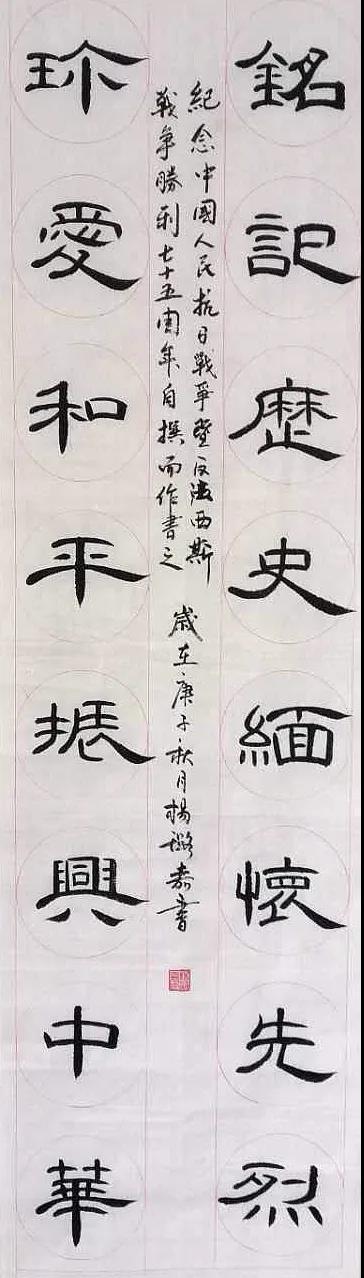 銘記歷史緬懷先烈
紀念中國人民抗日戰爭暨反法西斯
戰爭勝利七十五周年自撰而作書之
歲在庚子秋月楊璐嘉書
珍愛和平振興中華